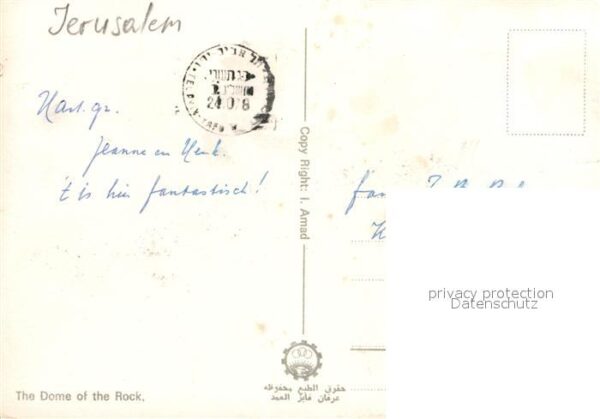 Jerusalem
תל אביב יפו
24.10.78
Hart. gr.
Jeanne en Henk.
't is hier fantastisch!
Copy Right: I. Amad
fam.
privacy protection
Datenschutz
The Dome of the Rock.
حقوق الطبع محفوظه
عرفان فايز العمد